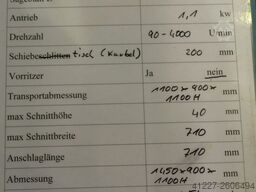 Antrieb 1,1 kw
Drehzahl 90-4000 U/min
Schiebeschlitten tisch (Kurbel) 200 mm
Vorritzer Ja nein
Transportabmessung 1100x900x
1100H mm
max Schnitthöhe 40 mm
max Schnittbreite 710 mm
Anschlaglänge 710 mm
Abmessung 1450x900x
1100H mm
41227-2606494